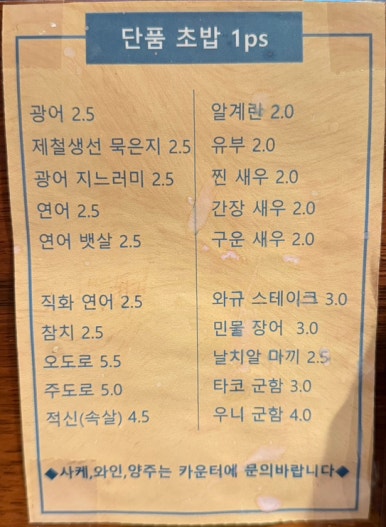 단품 초밥 1ps
광어 2.5
제철생선 묵은지 2.5
광어 지느러미 2.5
연어 2.5
연어 뱃살 2.5
직화 연어 2.5
참치 2.5
오도로 5.5
주도로 5.0
적신(속살) 4.5
알계란 2.0
유부 2.0
찐 새우 2.0
간장 새우 2.0
구운 새우 2.0
와규 스테이크 3.0
민물 장어 3.0
날치알 마끼 2.5
타코 군함 3.0
우니 군함 4.0
◆사케,와인,양주는 카운터에 문의바랍니다◆